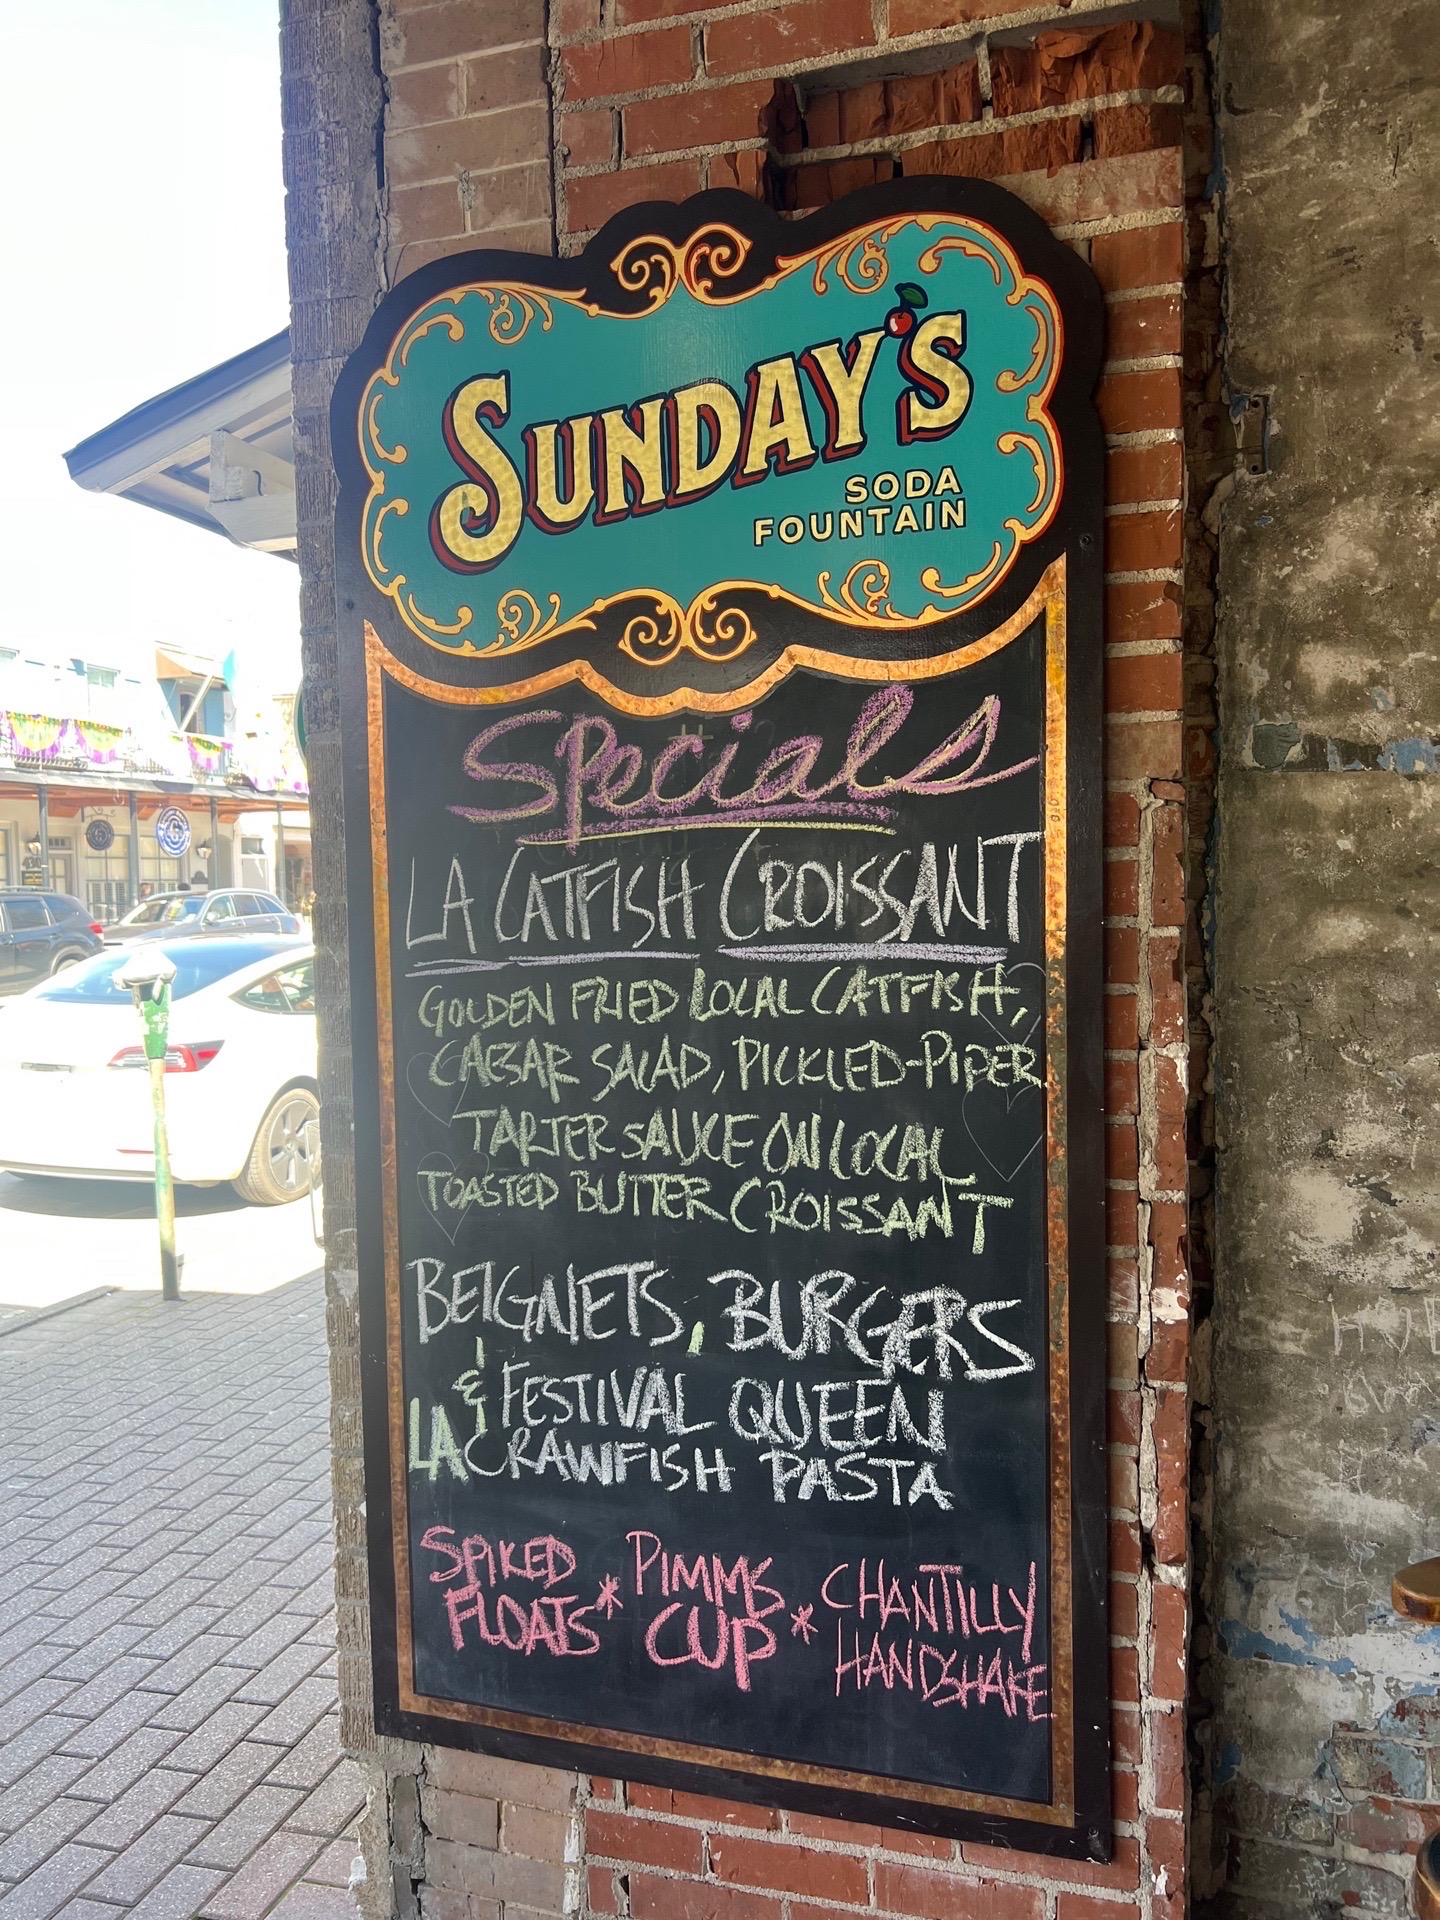 SUNDAY'S
SODA
FOUNTAIN
Specials
LA CATFISH CROISSANT
GOLDEN FRIED LOCAL CATFISH,
CAESAR SALAD, PICKLED-PIPER
TARTER SAUCE ON LOCAL
TOASTED BUTTER CROISSANT
BEIGNETS, BURGERS
& FESTIVAL QUEEN
LA CRAWFISH PASTA
SPIKED
FLOATS * PIMMS
CUP * CHANTILLY
HANDSHAKE
430